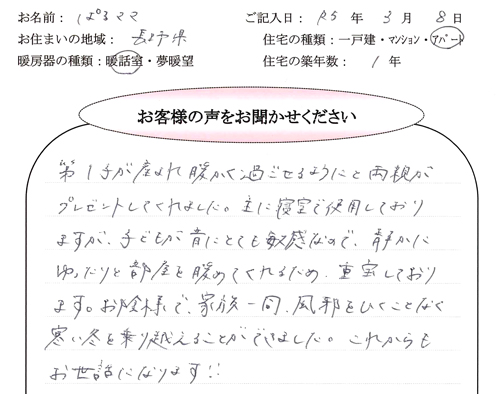 お名前：ぱるママ
ご記入日：R5年3月8日
お住まいの地域：長野県
住宅の種類：一戸建・マンション・アパート
暖房器の種類：暖話室・夢暖望
住宅の築年数：1年
お客様の声をお聞かせください
第1子が産まれ暖かく過ごせるようにと両親が
プレゼントしてくれました。主に寝室で使用しており
ますが、子どもが音にとても敏感なので、静かに
ゆったりと部屋を暖めてくれるため、重宝しており
ます。お陰様で、家族一同、風邪をひくことなく
寒い冬を乗り越えることができました。これからも
お世話になります!!